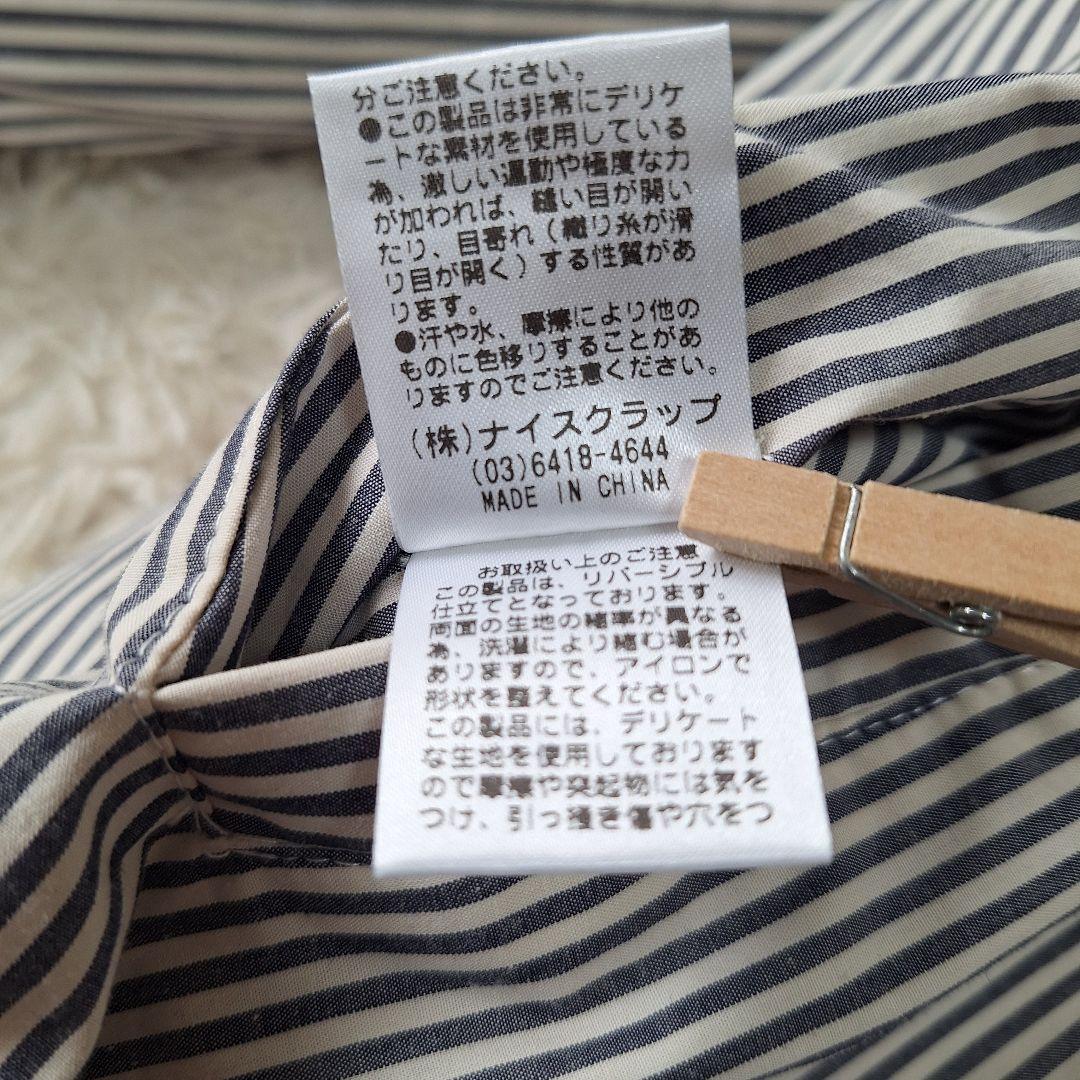 分ご注意ください。
●この製品は非常にデリケ
ートな素材を使用している
為、激しい運動や極度な力
が加われば、縫い目が開い
たり、目寄れ（織り糸が滑
り目が開く）する性質があ
ります。
●汗や水、摩擦により他の
ものに色移りすることがあ
りますのでご注意ください。
(株)ナイスクラップ
(03)6418-4644
MADE IN CHINA
お取扱い上のご注意
この製品は、リバーシブル
仕立てとなっております。
両面の生地の縮率が異なる
為、洗濯により縮む場合が
ありますので、アイロンで
形状を整えてください。
この製品には、デリケート
な生地を使用しております
ので摩擦や突起物には気を
つけ、引っ掻き傷や穴をつ